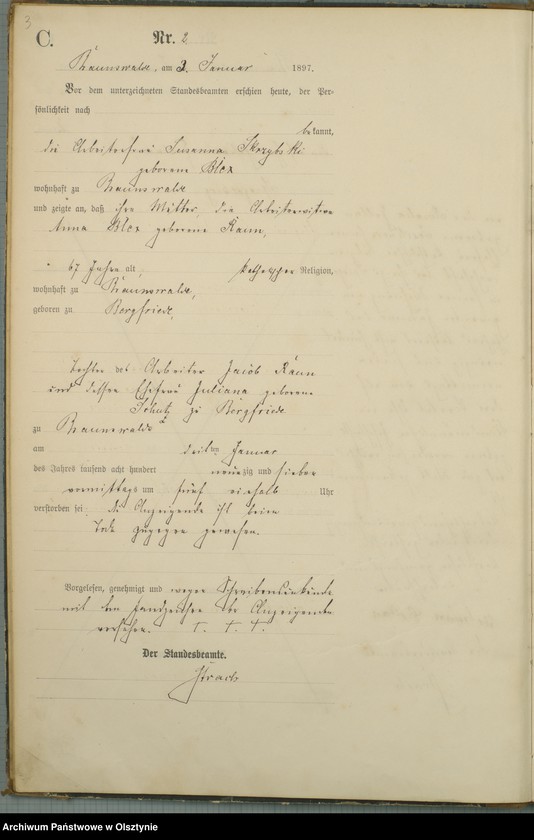 3
C.
Nr. 2
am 3. Januar 1897.
Vor dem unterzeichneten Standesbeamten erschien heute, der Per-
sönlichkeit nach
bekannt,
die Arbeiterfrau Susanna Skrzybski
geborene Blox
wohnhaft zu
und zeigte an, daß ihre Mutter, die Arbeiterwittwe
Anna Blox geborene Kaun,
67 Jahre alt, katholischer Religion,
wohnhaft zu
geboren zu Bergfriede,
Tochter des Arbeiter Jacob Kaun
und dessen Ehefrau Juliana geborene
zu Bergfriede
zu
am dritten Januar
des Jahres tausend acht hundert neunzig und sieben
vormittags um fünf einhalb Uhr
verstorben sei, die Anzeigende ist beim
Tode zugegen gewesen.
Vorgelesen, genehmigt und wegen Schreibensunkunde
mit den Handzeichen der Anzeigenden
versehen. † † †
Der Standesbeamte.
Archiwum Państwowe w Olsztynie